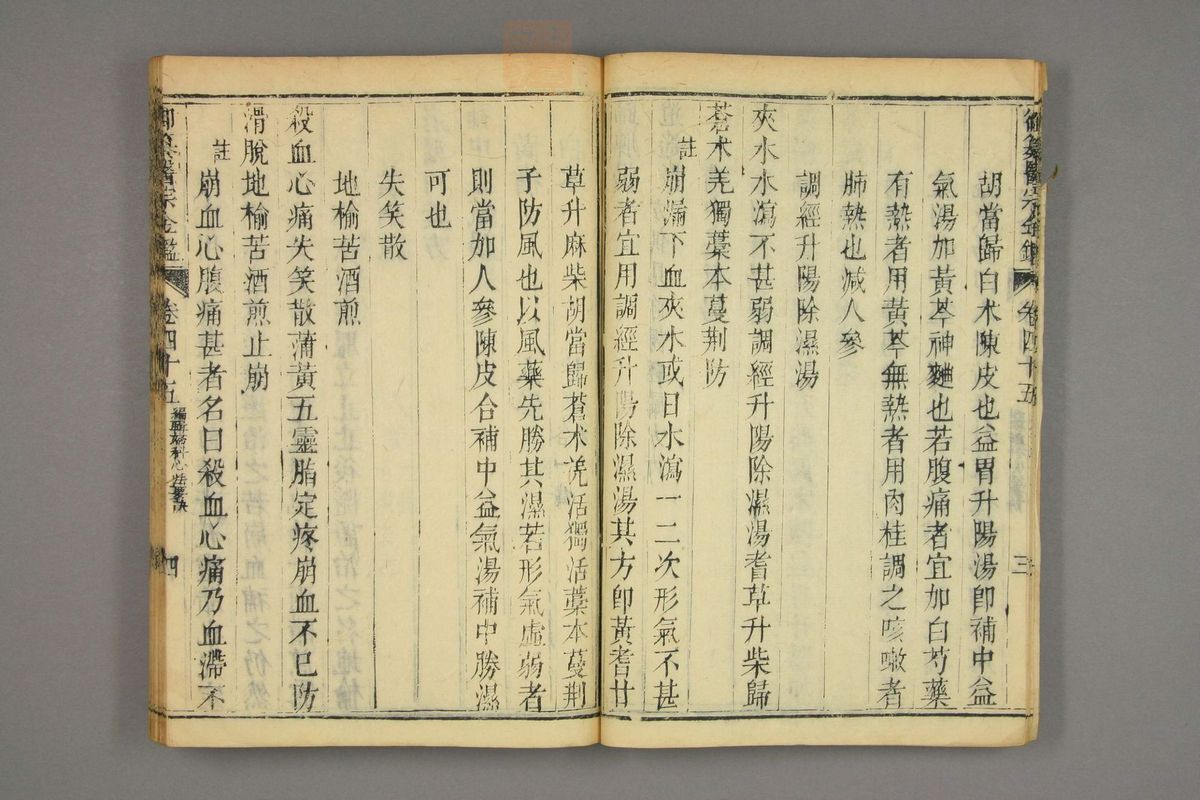 御纂醫宗金鑑 卷四十五 三
胡當歸白术陳皮也益胃升陽湯卽補中益
氣湯加黃芩神麯也若腹痛者宜加白芍藥
有熱者用黃芩無熱者用肉桂調之咳嗽者
肺熱也減人參
調經升陽除濕湯
夾水水瀉不甚弱調經升陽除濕湯耆草升柴歸
蒼术羌獨藁本蔓荆防
註
崩漏下血夾水或日水瀉一二次形氣不甚
弱者宜用調經升陽除濕湯其方卽黃耆甘
草升麻柴胡當歸蒼术羌活獨活藁本蔓荆
子防風也以風藥先勝其濕若形氣虛弱者
則當加人參陳皮合補中益氣湯補中勝濕
可也
失笑散
地榆苦酒煎
殺血心痛失笑散蒲黃五靈脂定疼崩血不已防
滑脫地榆苦酒煎止崩
註
崩血心腹痛甚者名曰殺血心痛乃血滯不
御纂醫宗金鑑 卷四十五 編輯婦科心法要訣 四